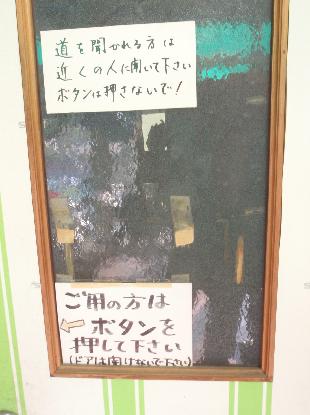 道を聞かれる方は
近くの人に聞いて下さい
ボタンは押さないで!
ご用の方は
←ボタンを
押して下さい
(ドアは開けないで下さい)